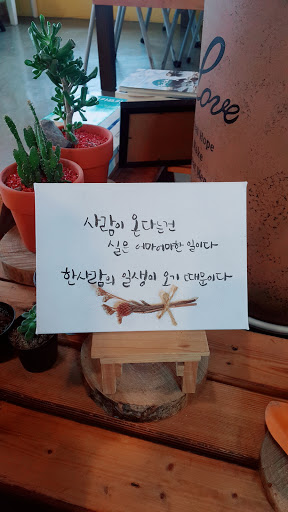 Love
사람이 온다는건
실은 어마어마한 일이다
한사람의 일생이 오기 때문이다